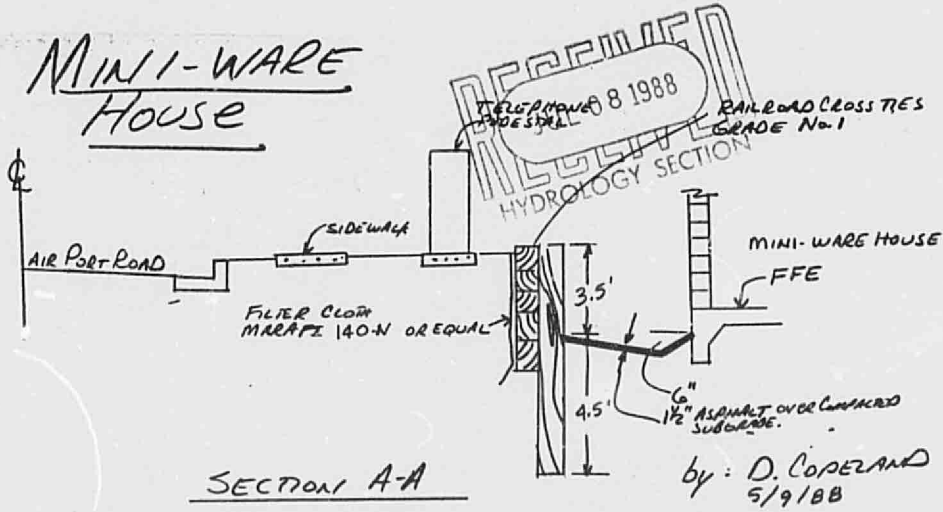 MINI-WARE
HOUSE
RECEIVED
JUL 08 1988
HYDROLOGY SECTION
TELEPHONE
PEDESTAL
RAILROAD CROSS TIES
GRADE No. 1
℄
SIDEWALK
AIR PORT ROAD
MINI-WARE HOUSE
FFE
3.5'
FILTER CLOTH
MARAFI 140-N OR EQUAL
4.5'
6"
1½" ASPHALT OVER COMPACTED
SUBGRADE.
SECTION A-A
by: D. COPELAND
5/9/88